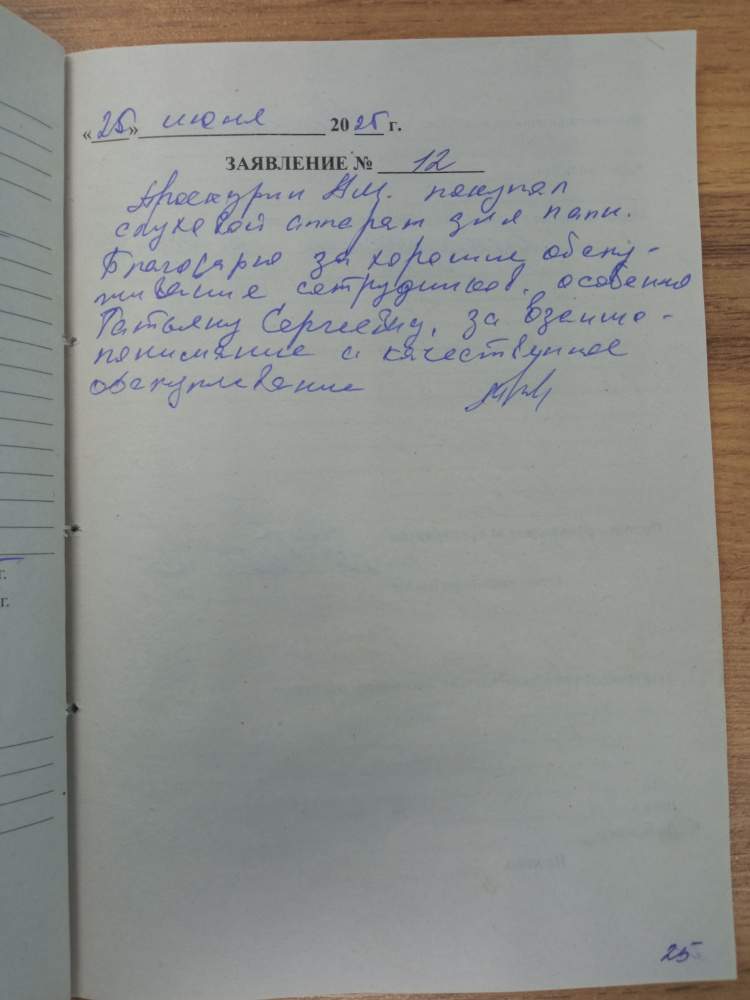 «25» июня 2025 г.
ЗАЯВЛЕНИЕ № 12
Проскурин покупал
слуховой аппарат для папы.
Благодарю за хорошие обслу-
живание сотрудников, особенно
Татьяну Сергеевну, за взаимо-
понимание и качественное
обслуживание
25
г.
г.